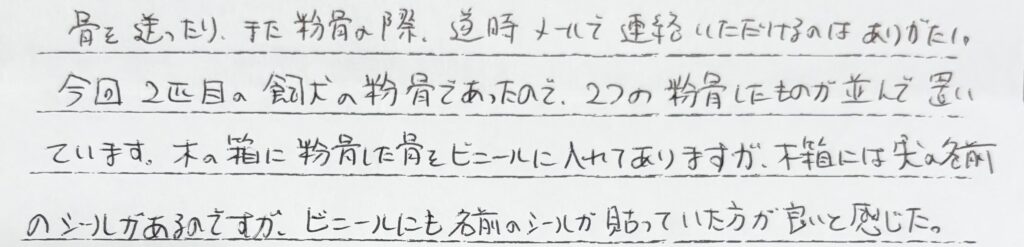 骨を送ったり、また粉骨の際、道時メールで連絡いただけるのはありがたい。
今回2匹目の飼犬の粉骨であったので、2つの粉骨したものが並んで置い
ています。木の箱に粉骨した骨をビニールに入れてありますが、木箱には犬の名前
のシールがあるのですが、ビニールにも名前のシールが貼っていた方が良いと感じた。